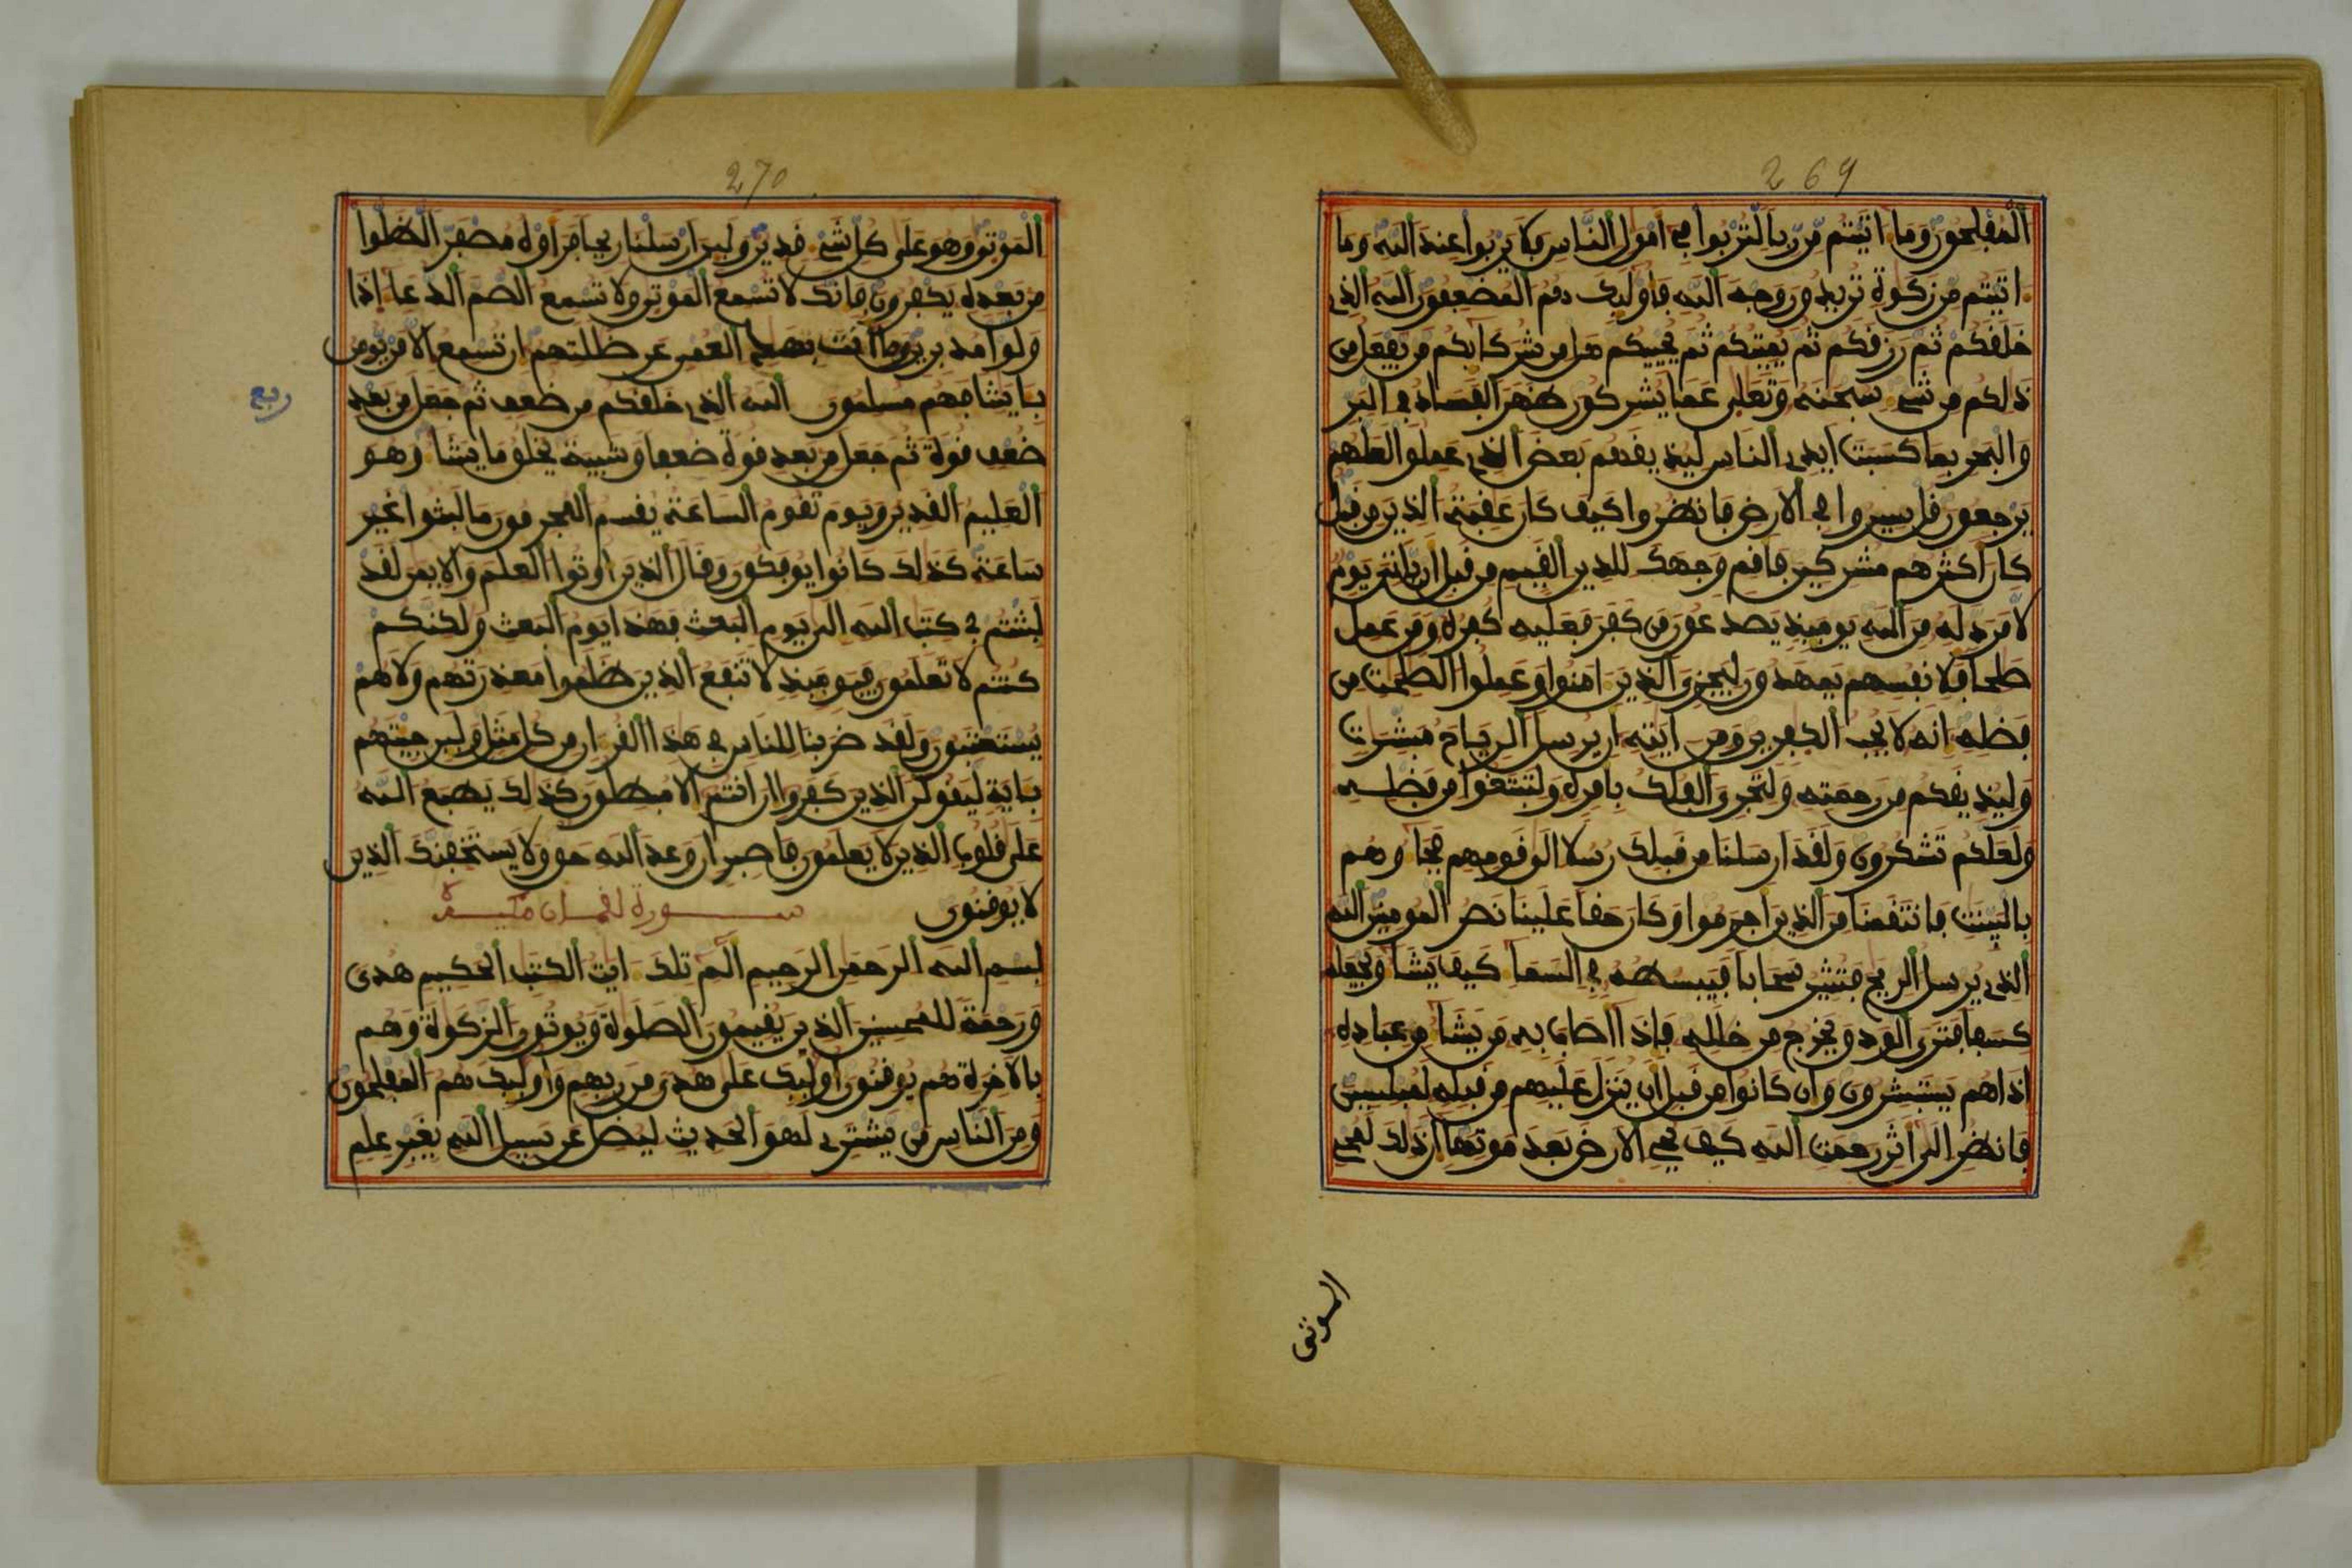 269
المفلحون وما اتيتم من ربا لتربوا في امول الناس فلا يربوا عند الله وما
اتيتم من زكوة تريدون وجه الله فاوليك هم المضعفون الله الذي
خلفكم ثم رزفكم ثم يميتكم ثم يحييكم هل من شركايكم من يفعل من
ذلكم من شيء سبحنه وتعلى عما يشركون ظهر الفساد في البر
والبحر بما كسبت ايدي الناس ليذيفهم بعض الذي عملوا لعلهم
يرجعون فل سيروا في الارض فانظروا كيف كان عفبة الذين من فبل
كان اكثرهم مشركين فافم وجهك للدين الفيم من فبل ان ياتي يوم
لا مرد له من الله يوميذ يصدعون من كفر فعليه كفره ومن عمل
صلحا فلانفسهم يمهدون ليجزي الذين امنوا وعملوا الصلحت من
فضله انه لا يحب الكفرين ومن ايته ان يرسل الرياح مبشرات
وليذيفكم من رحمته ولتجري الفلك بامره ولتبتغوا من فضله
ولعلكم تشكرون ولفد ارسلنا من فبلك رسلا الى فومهم فجاوهم
بالبينت فانتفمنا من الذين اجرموا وكان حفا علينا نصر المومنين الله
الذي يرسل الريح فتثير سحابا فيبسطه في السما كيف يشا ويجعله
كسفا فترى الودو يخرج من خلله فاذا اصاب به من يشا من عباده
اذا هم يستبشرون وان كانوا من فبل ان ينزل عليهم من فبله لمبلسين
فانظر الى اثر رحمت الله كيف يحي الارض بعد موتها ان ذلك لمحي
الموتى
270
الموتى وهو على كل شيء فدير ولين ارسلنا ريحا فراوه مصفرا لظلوا
من بعده يكفرون فانك لا تسمع الموتى ولا تسمع الصم الدعا اذا
ولوا مدبرين وما انت بهد العمي عن ضللتهم ان تسمع الا من يومن
بايتنا فهم مسلمون الله الذي خلفكم من ضعف ثم جعل من بعد
ضعف فوة ثم جعل من بعد فوة ضعفا وشيبة يخلو ما يشا وهو
العليم الفدير ويوم تفوم الساعة يفسم المجرمون ما لبثوا غير
ساعة كذلك كانوا يوفكون وفال الذين اوتوا العلم والايمن لفد
لبثتم في كتب الله الى يوم البعث فهذا يوم البعث ولكنكم
كنتم لا تعلمون فيوميذ لا تنفع الذين ظلموا معذرتهم ولا هم
يستعتبون ولفد ضربنا للناس في هذا الفران من كل مثل ولين جيتهم
باية ليفولن الذين كفروا ان انتم الا مبطلون كذلك يطبع الله
على فلوب الذين لا يعلمون فاصبر ان وعد الله حو ولا يستخفنك الذين
لا يوفنون سورة لفمان مكية
بسم الله الرحمن الرحيم الم تلك ايت الكتب الحكيم هدى
ورحمة للمحسنين الذين يفيمون الصلوة ويوتون الزكوة وهم
بالاخرة هم يوفنون اوليك على هدى من ربهم واوليك هم المفلحون
ومن الناس من يشتري لهو الحديث ليضل عن سبيل الله بغير علم
ربع